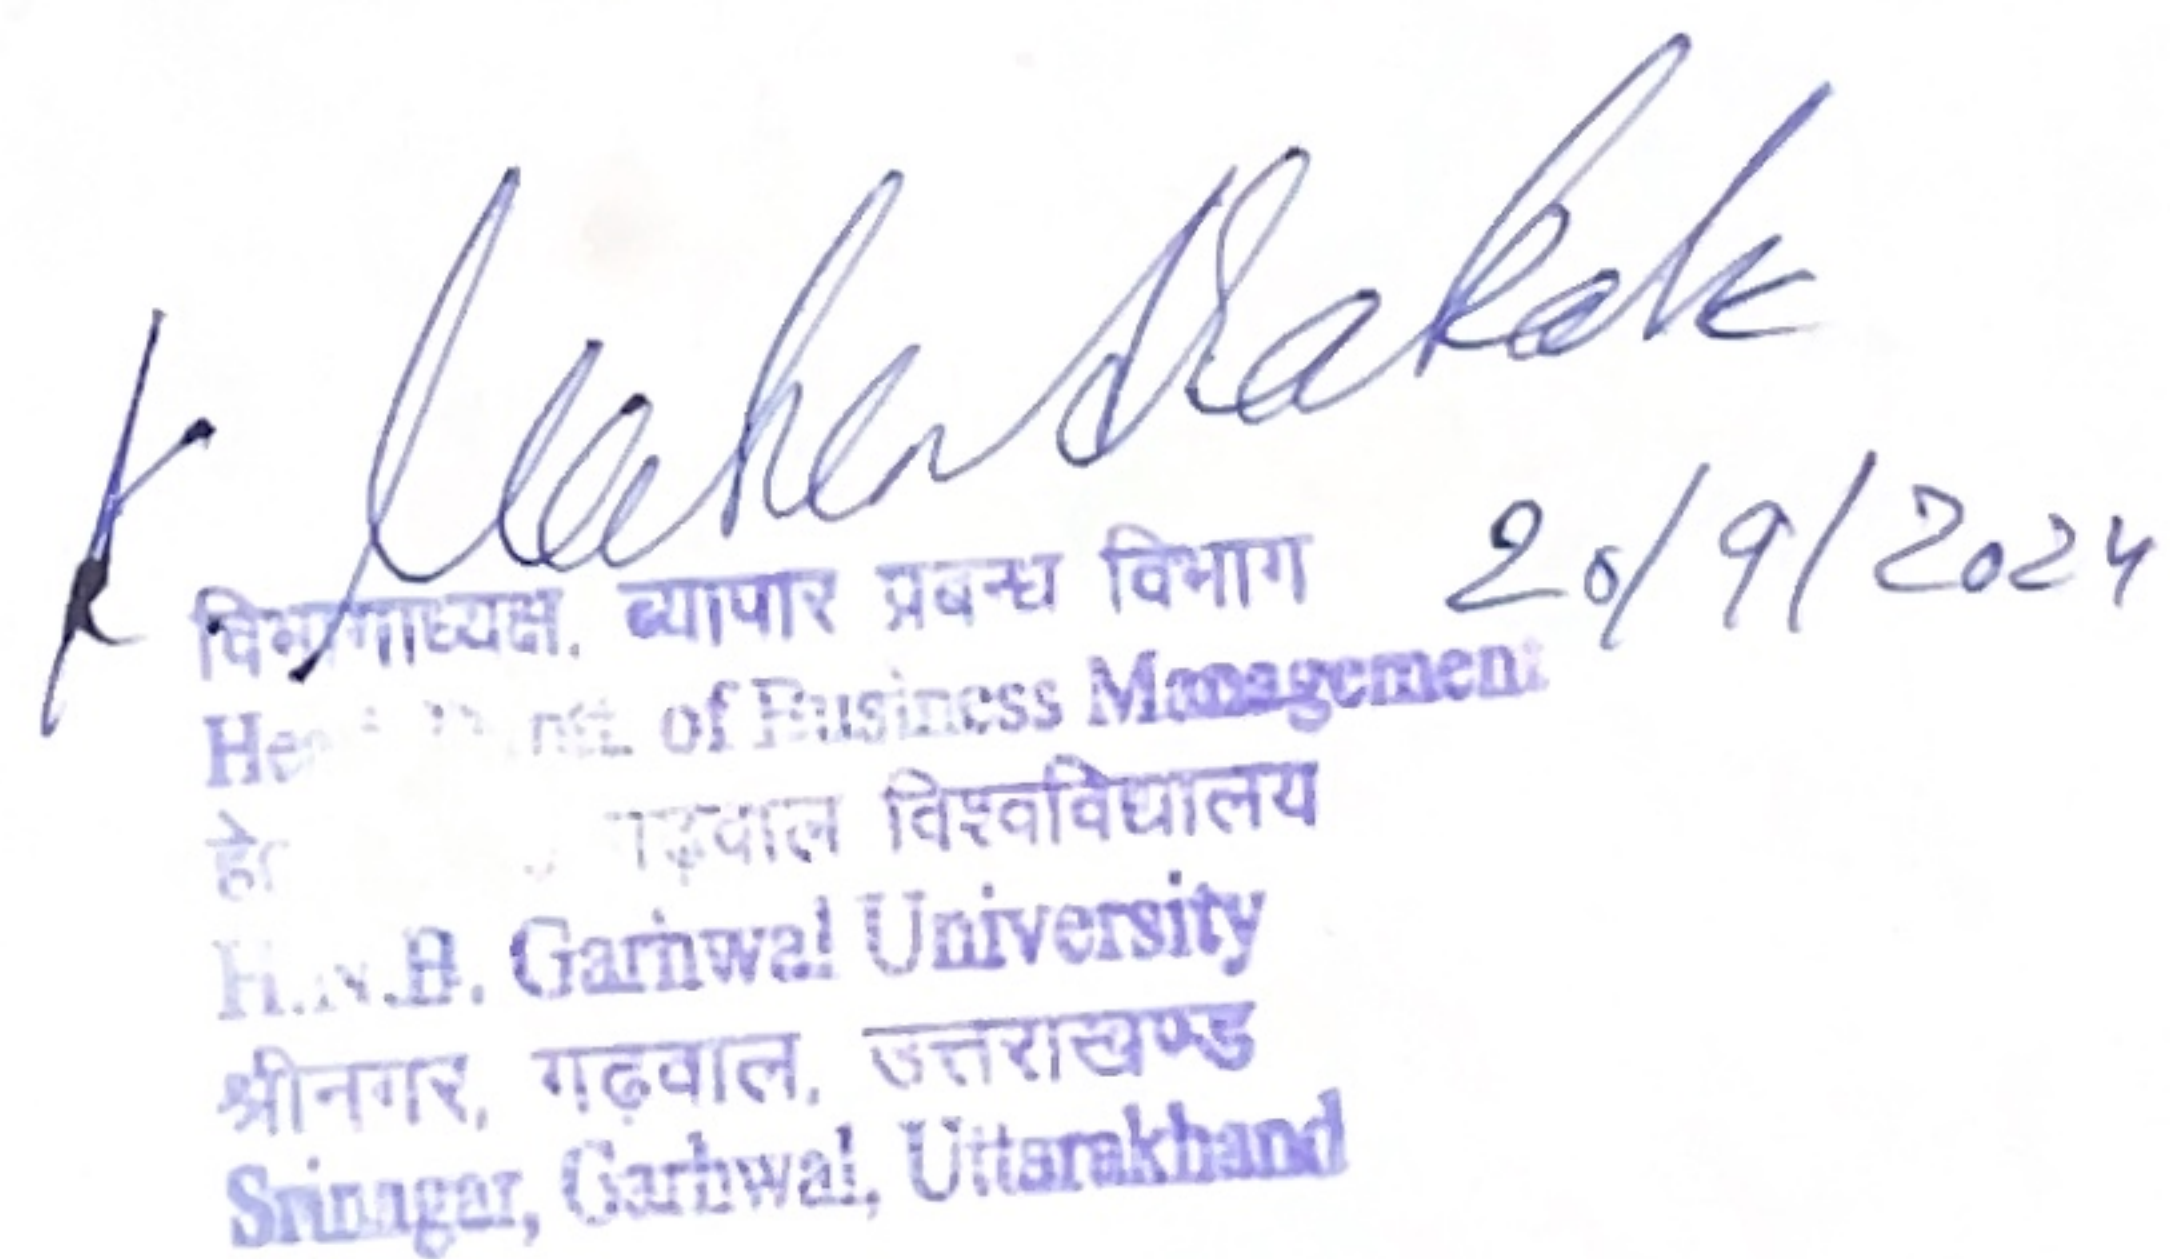 20/9/2024
विभागाध्यक्ष, व्यापार प्रबन्ध विभाग
of Business Management
गढ़वाल विश्वविद्यालय
H.N.B. Garhwal University
श्रीनगर, गढ़वाल, उत्तराखण्ड
Srinagar, Garhwal, Uttarakhand